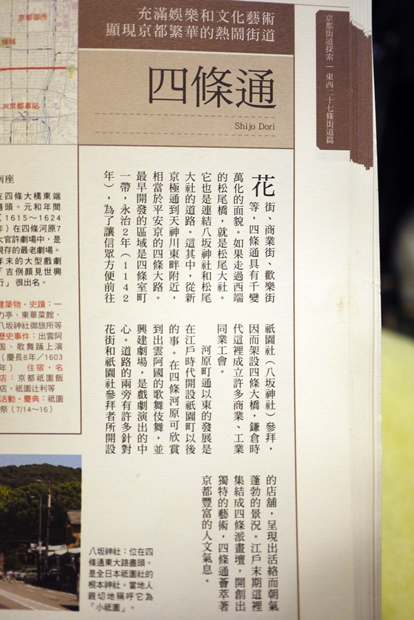 京都街道探索 — 東西 二十七條街道篇
充滿娛樂和文化藝術
顯現京都繁華的熱鬧街道
四條通
Shijo Dori
花街、商業街、歡樂街
等，四條通具有千變
萬化的面貌。如果走過西端
的松尾橋，就是松尾大社。
它也是連結八坂神社和松尾
大社的道路。這其中，從新
京極通到天神川東畔附近，
相當於平安京的四條大路。
最早開發的區域是四條室町
一帶，永治2年（1142
年），為了讓信眾方便前往
祇園社（八坂神社）參拜，
因而架設四條大橋，鎌倉時
代這裡成立許多商業、工業
同業工會。
河原町通以東的發展是
在江戶時代開設祇園町以後
的事。在四條河原可欣賞
到出雲阿國的歌舞伎舞，並
興建劇場，是戲劇演出的中
心。道路的兩旁有許多針對
花街和祇園社參拜者所開設
的店舖，呈現出活絡而朝氣
蓬勃的景況。江戶末期這裡
集結成四條派畫壇，開創出
獨特的藝術，四條通薈萃著
京都豐富的人文氣息。
南座
在四條大橋東端
盡頭。元和年間
（1615～1624
年）在四條河原7
大官許劇場中，是
現存的最老劇場。
年末的大型戲劇
「吉例顏見世興
」很出名。
建築物．史蹟：一
力亭、東華菜館、
八坂神社御旅所等
歷史事件：出雲阿
國、歌舞踊上演
（慶長8年／1603
年） 住宿．名
店：京都祇園飯
店、祇園辻利等
活動、慶典：祇園
祭（7/14～16）
JR京都車站
八坂神社：位在四
條通東大路盡頭，
是全日本祇園社的
根本神社。當地人
親切地稱呼它為
「小祇園」。